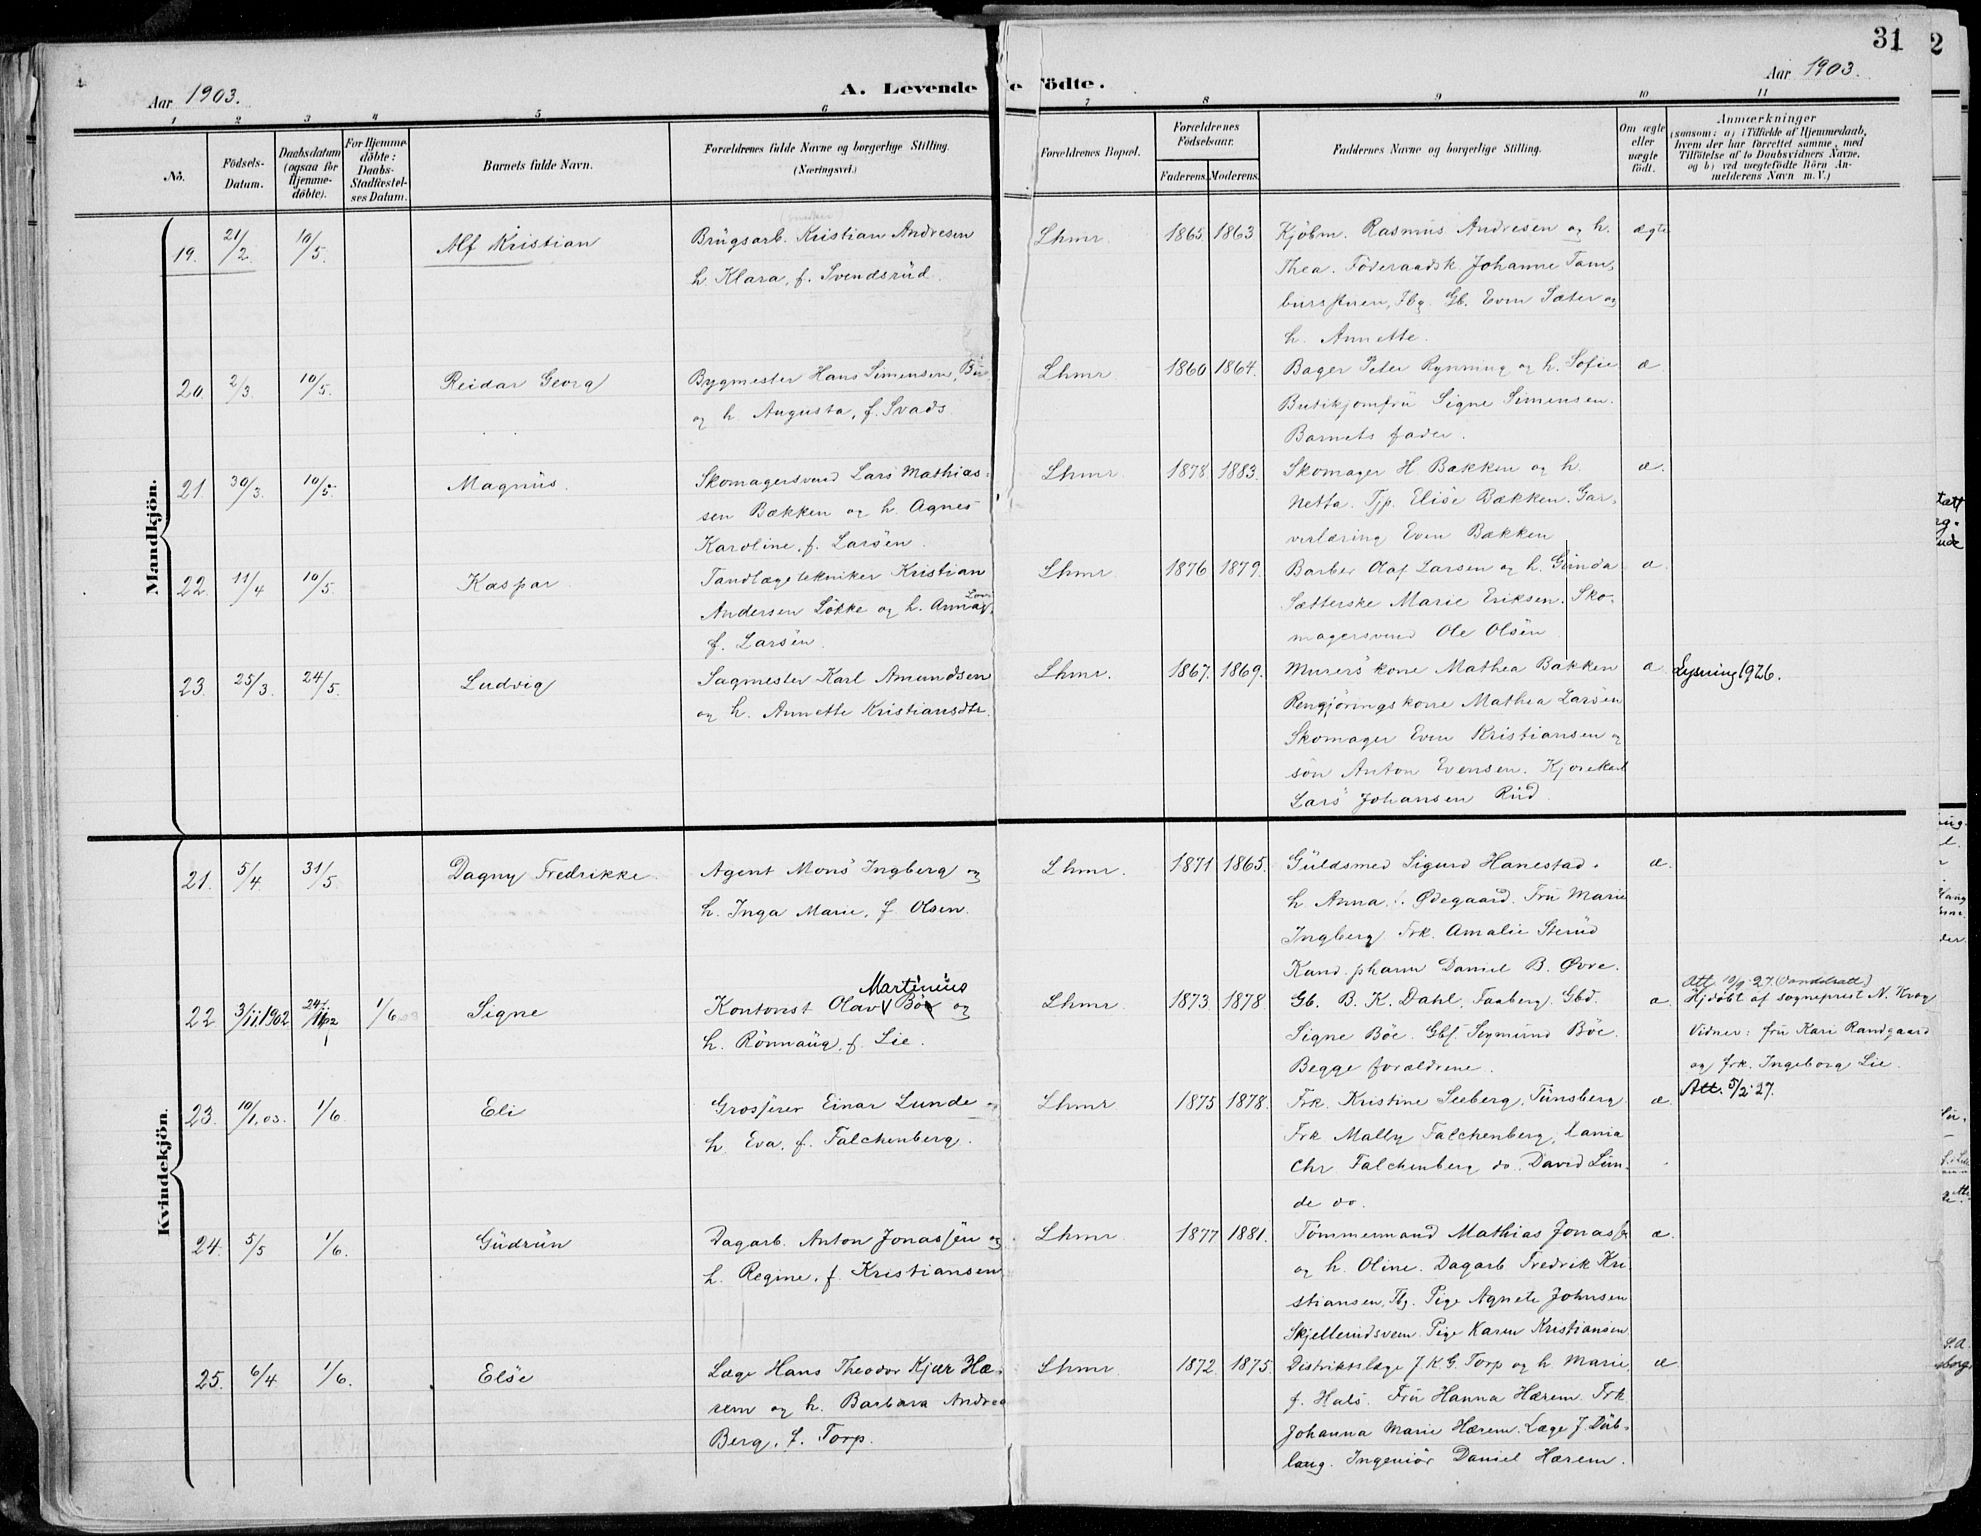 31
Aar 1903.
A. Levende Födte.
Aar 1903.
1 2 3 4 5 6 7 8 9 10 11
No.
Födsels-Datum.
Daabsdatum (ogsaa for Hjemme-döbte).
For Hjemme-döbte: Daabs-Stadfæstel-ses Datum.
Barnets fulde Navn.
Forældrenes fulde Navne og borgerlige Stilling. (Næringsvei.)
Forældrenes Bopæl.
Forældrenes Födselsaar.
Faderens. Moderens.
Faddernes Navne og borgerlige Stilling.
Om ægte eller uægte födt.
Anmærkninger
(saasom: a) i Tilfælde af Hjemmedaab, hvem der har forrettet samme, med Tilföielse af to Daabsvidners Navne, og b) ved uægtefödte Börn An-melderens Navn m. V.)
Mandkjön.
19. 21/2. 10/5. Alf Kristian
Brugsarb. Kristian Andresen
h. Klara, f. Svendsrud.
Lhmr. 1865 1863
Kjöbm. Rasmus Andresen og h.
Thea. Föderaadsk. Johanne Tam-
burstuen, Fbg. Gb. Even Sæter og
h. Annette.
ægte
20. 2/3. 10/5. Reidar Georg
Bygmester Hans Simensen,
og h. Augusta, f. Svads
Lhmr. 1860 1864.
Bager Peter Rynning og h. Sofie
Butikjomfru Signe Simensen.
Barnets fader.
æ
21. 30/3. 10/5. Magnus.
Skomagersvend Lars Mathias-
sen Bakken og h. Agnes
Karoline, f. Larsen.
Lhmr. 1878 1883.
Skomager H. Bakken og h.
Netta. Tjp. Elise Bakken. Gar-
verlæring Even Bakken
æ.
22. 11/4 10/5. Kaspar
Tandlægetekniker Kristian
Andersen Lökke og h. Anna
f. Larsen.
Lhmr. 1876 1879.
Barber Olaf Larsen og h. Gunda
Sætterske Marie Eriksen. Sko-
magersvend Ole Olsen
æ
23. 25/3. 24/5. Ludvig
Sagmester Karl Amundsen
og h. Annette Kristiansdtr.
Lhmr. 1867. 1869.
Murers kone Mathea Bakken
Rengjöringskone Mathea Larsen
Skomager Even Kristiansen og
sön Anton Evensen. Kjörekarl
Lars Johansen Rud.
æ
Lysning 1926.
Kvindekjön.
21. 5/4. 31/5. Dagny Fredrikke.
Agent Mons Ingberg og
h. Inga Marie, f. Olsen.
Lhmr. 1871 1865.
Guldsmed Sigurd Hanestad.
h. Anna, f. Ødegaard. Fru Marie
Ingberg Frk. Amalie Sterud
Kand. pharm Daniel B. Øvre.
æ.
22 3/11.1902 24/11 02 1/6 03 Signe
Martinius
Kontorist Olav Böe og
h. Rönnaug, f. Lie.
Lhmr. 1873. 1878.
Gb. B. K. Dahl, Faaberg. Gbd.
Signe Böe. Gbs. Sigmund Böe.
Begge forældrene.
æ.
Att. 10/9 27.
Hjdöbt af sogneprest N. Kvaq
Vidner: fru Kari Randgaard
og frk. Ingeborg Lie.
23. 10/1.03. 1/6 Eli
Grosserer Einar Lunde
h. Eva, f. Falchenberg.
Lhmr 1875 1878.
Frk. Kristine Seeberg, Tünsberg
Frk Mally Falchenberg,
Chr Falchenberg do. David Lun-
de do.
æ.
Att. 5/2 27.
24. 5/5 1/6. Gudrun
Dagarb. Anton Jonassen og
h. Regine, f. Kristiansen
Lhmr. 1877 1881.
Tömmermand Mathias Jonass.
og h. Oline. Dagarb Fredrik Kri
stiansen, Fbg. Pige Agnete Johnsen
Skjellerudsveen. Pige Karen Kristiansen
æ.
25. 6/4 1/6. Else
Læge Hans Theodor Kjær Hæ-
rem og h. Barbara Andrea
Berg, f. Torp.
Lhmr. 1872 1875.
Distriktslæge J. K. G. Torp og h Marie,
f. Hals. Fru Hanna Hærem. Frk
Johanna Marie Hærem. Læge J. Dub-
laug. Ingeniör Daniel Hærem.
æ